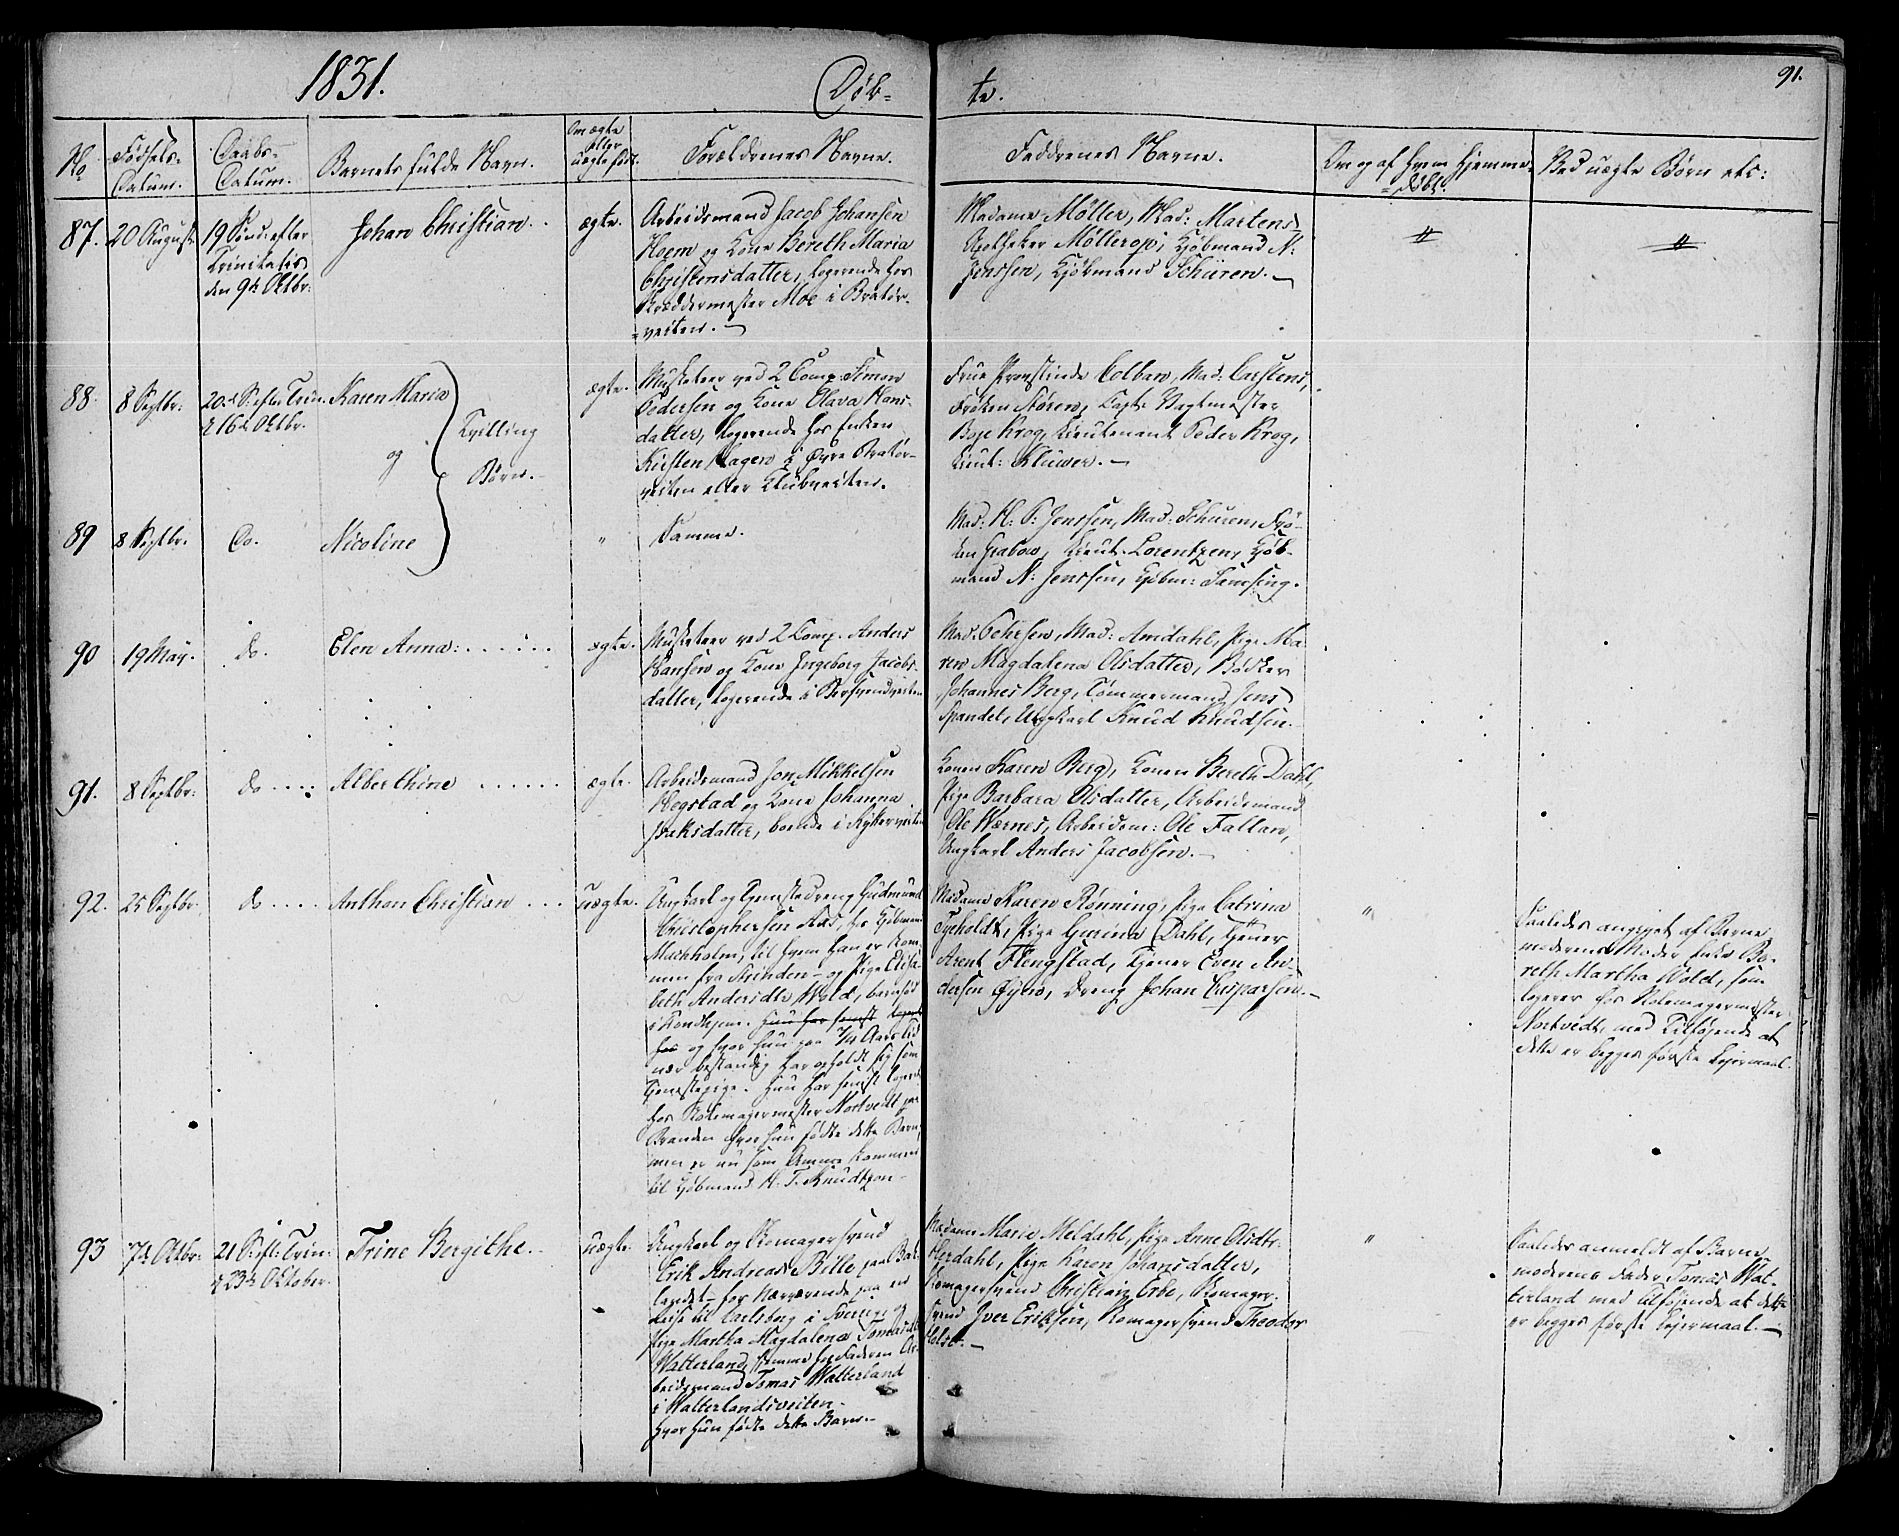 1831.
Døb-
te.
91.
No
Fødsels-
Datum.
Daabs-
Datum.
Barnets fulde Navn.
Om ægte
eller
uægte født.
Forældrenes Navne.
Faddrenes Navne.
Om og af hvem hjemme-
=døbt.
Ved uægte Børn etc:
87.
20 August
19 Sønd: efter
Trinitatis
den 9de Oktbr:
Johan Christian.
ægte.
Arbeidsmand Jacob Johansen
Hoem og Kone Bereth Maria
Christensdatter, logerende hos
Skræddermester Moe i Bratør-
=veiten.
Madame Møller, Mad: Martens,
Apotheker Møllerop, Kjøbmand N:
Jenssen, Kjøbmand Schüren.
88.
8 Septbr:
20de S: efter Trin.
d 16de Oktbr.
Karen Maria
og
Tvilling
Børn.
ægte.
Musketeer ved 2 Comp. Simon
Pedersen og Kone Olava Hans-
datter, logerende hos Enken
Kirsten Hagen i Øvre Bratør-
veiten eller Klubveiten.
Frue Provstinde Colban, Mad: Carstens,
Frøken Støren, Capt: Vagtmester
Boje Krog, Lieutenant Peder Krog,
Lieut: Klüwer.
89
8 Septbr.
Do.
Nicoline
"
Samme.
Mad: H: P: Jenssen, Mad: Schuren, Frø-
ken Grabow, Lieut. Lorentzen, Kjøb-
mand N: Jenssen, Kjøbm: Samsing.
90
19 May.
do.
Elen Anna:
ægte.
Musketeer ved 2 Comp. Anders
Hansen og Kone Ingeborg Jacobs-
datter, logerende i Bersvendveiten
Mad: Pehrsen, Mad: Amdahl, Pige Ma-
ren Magdalena Olsdatter, Bødker
Johannes Berg, Tømmermand Jens
Spandet, Ungkarl Knud Knudsen.
91.
8 Septbr:
do
Alberthine
ægte.
Arbeidsmand Jon Mikkelsen
Hegstad og Kone Johanna
Isaksdatter, boende i Rykerveiten
Konen Karen Berg, Konen Bereth Dahl,
Pige Barbara Olsdatter, Arbeidsmand
Ole Wærnes, Arbeidsm: Ole Fallan,
Ungkarl Anders Jacobsen.
92.
25 Septbr.
do
Anthon Christian
uægte.
Ungkarl og Tjenestedreng Gudmund
Christophersen Aas, hos Kjøbmand
Machholm, til hvem han er kom-
men fra Strinden - og Pige Elisa-
beth Andersdtr Wold, barnefød
i Trondhjem. Hun har senest logeret
hos og hvor hun paa 7/4 Aars Tid
nær bestandig har opholdt sig som
Tjenestepige. Hun har senest logeret
hos Rokemagermester Nortvedt paa
Branden hvor hun fødte dette Barn,
men er nu som Amme kommen
til Kjøbmand H. T. Knudtzon
Madame Karen Rønning, Pige Catrina
Tyeholdt, Pige Gurina Dahl, Tjener
Arent Flengstad, Tjener Even An-
dersen Øyen, Dreng Johan Casparsen.
"
Saaledes angivet af Barne
moderens Moder Enke Be-
reth Martha Wold, som
logerer hos Rokemagermester
Nortvedt, med Tilføiende at
dette er begges første Leiermaal.
93
7de Oktbr:
21 S: eft: Trin:
d 23de Oktober.
Trine Bergithe.
uægte.
Ungkarl og Skomagersvend
Erik Andreas Bille paa Bak-
landet - for Nærværende paa en
Reise til Carlsborg i Sverrige og
Pige Martha Magdalena Tomasdtr
Watterland, hjemme hos Faderen Ar-
beidsmand Tomas Watterland
i Watterlandsveiten
hvor hun fødte dette Barn.
Madame Marie Meldahl, Pige Anne Olsdtr:
Herdahl, Pige Karen Johansdatter,
Skomagersvend Christian Erbe, Skomager-
svend Iver Eriksen, Skomagersvend Theodor
Holst.
"
Saaledes anmeldt af Barne
moderens Fader Tomas Wat-
terland med Tilføiende at dette
er begges første Leiermaal.